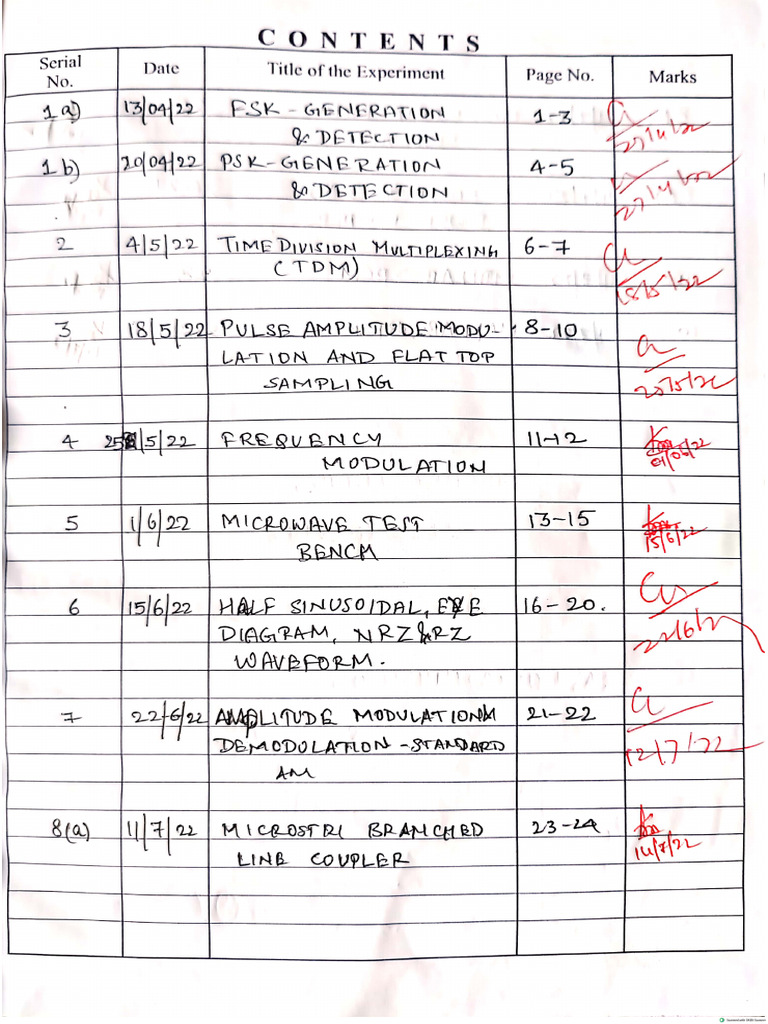 CONTENTS
Serial No. Date Title of the Experiment Page No. Marks
1 a) 13/04/22 FSK - GENERATION 1-3
& DETECTION 27/4/22
1 b) 20/04/22 PSK - GENERATION 4-5
& DETECTION 27/4/22
2 4/5/22 TIME DIVISION MULTIPLEXING 6-7
(TDM) 18/5/22
3 18/5/22 PULSE AMPLITUDE MODU- 8-10
LATION AND FLAT TOP
SAMPLING 25/5/22
4 25/5/22 FREQUENCY 11-12
MODULATION 01/06/22
5 1/6/22 MICROWAVE TEST 13-15
BENCH 15/6/22
6 15/6/22 HALF SINUSOIDAL, EYE 16-20.
DIAGRAM, NRZ & RZ 22/6/22
WAVEFORM.
7 22/6/22 AMPLITUDE MODULATION 21-22
DEMODULATION - STANDARD 12/7/22
AM
8(a) 11/7/22 MICROSTRI BRANCHED 23-24
LINE COUPLER 14/7/22